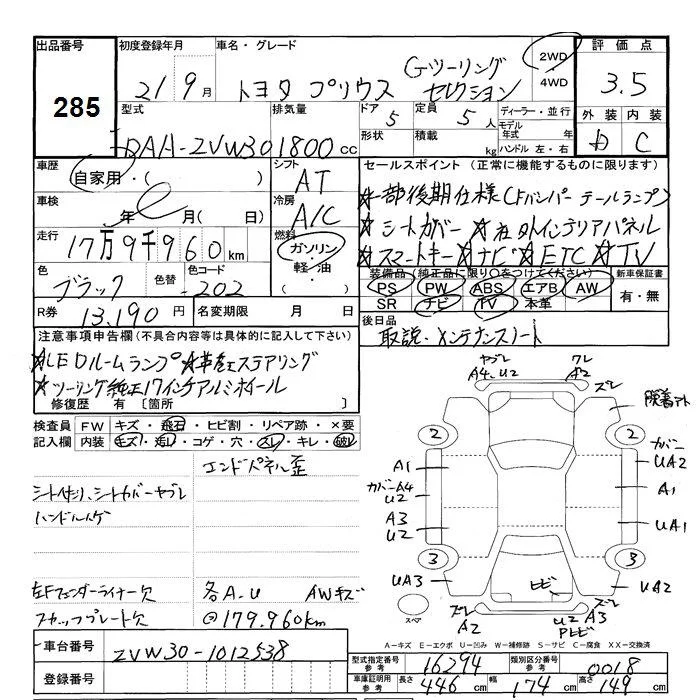 出品番号
285
初度登録年月
21 9月
車名・グレード
トヨタ プリウス
Gツーリング
セレクション
2WD
4WD
評価点
3.5
外装 内装
C
型式
DAA-ZVW30
排気量
1800 cc
ドア
5
形状
定員
5人
積載 kg
ディーラー・並行
モデル
年式 年
ハンドル 左・右
車歴
自家用・( )
シフト
AT
車検
年 月( 日)
冷房
A/C
走行
17万9千960 km
燃料
ガソリン・
軽油・
( )
色
ブラック
色替
色コード
202
R券
13,190 円
名変期限 月 日
セールスポイント (正常に機能するものに限ります)
★一部後期仕様(Fバンパー テールランプ)
★シートカバー ★社外インテリアパネル
★スマートキー ★ナビ ★ETC ★TV
装備品 (純正品に限り○をつけてください)
新車保証書
PS PW ABS エアB AW
有・無
SR ナビ TV 本革
後日品
取説・メンテナンスノート
注意事項申告欄(不具合内容等は具体的に記入して下さい)
★LEDルームランプ ★革巻ステアリング
★ツーリング純正17インチアルミホイール
修復歴 有 [箇所 ]
検査員
記入欄
FW キズ・飛石・ヒビ割・リペア跡・×要
内装 キズ・汚れ・コゲ・穴・スレ・キレ・破レ
エンドパネル歪
シート汚れ、シートカバーヤブレ
ハンドルハゲ
左Fフェンダーライナー欠
スカッフプレート欠
各A・U AWキズ
@179,960km
ヤブレ
A4、U2
ワレ
A2
ズレ
2
2
カバー
UA2
A1
A1
カバーA4
U2
A3
U2
UA1
3
3
UA3
UA2
ヒビ
スペア
ズレ
A2
U2 A3
ズレ
A-キズ E-エクボ U-凹み W-補修跡 S-サビ C-腐食 XX-交換済
車台番号
ZVW30-1012538
登録番号
型式指定番号
参考
16294
類別区分番号
参考
0018
車庫証明用
参考
長さ 446 cm
幅 174 cm
高さ 149 cm